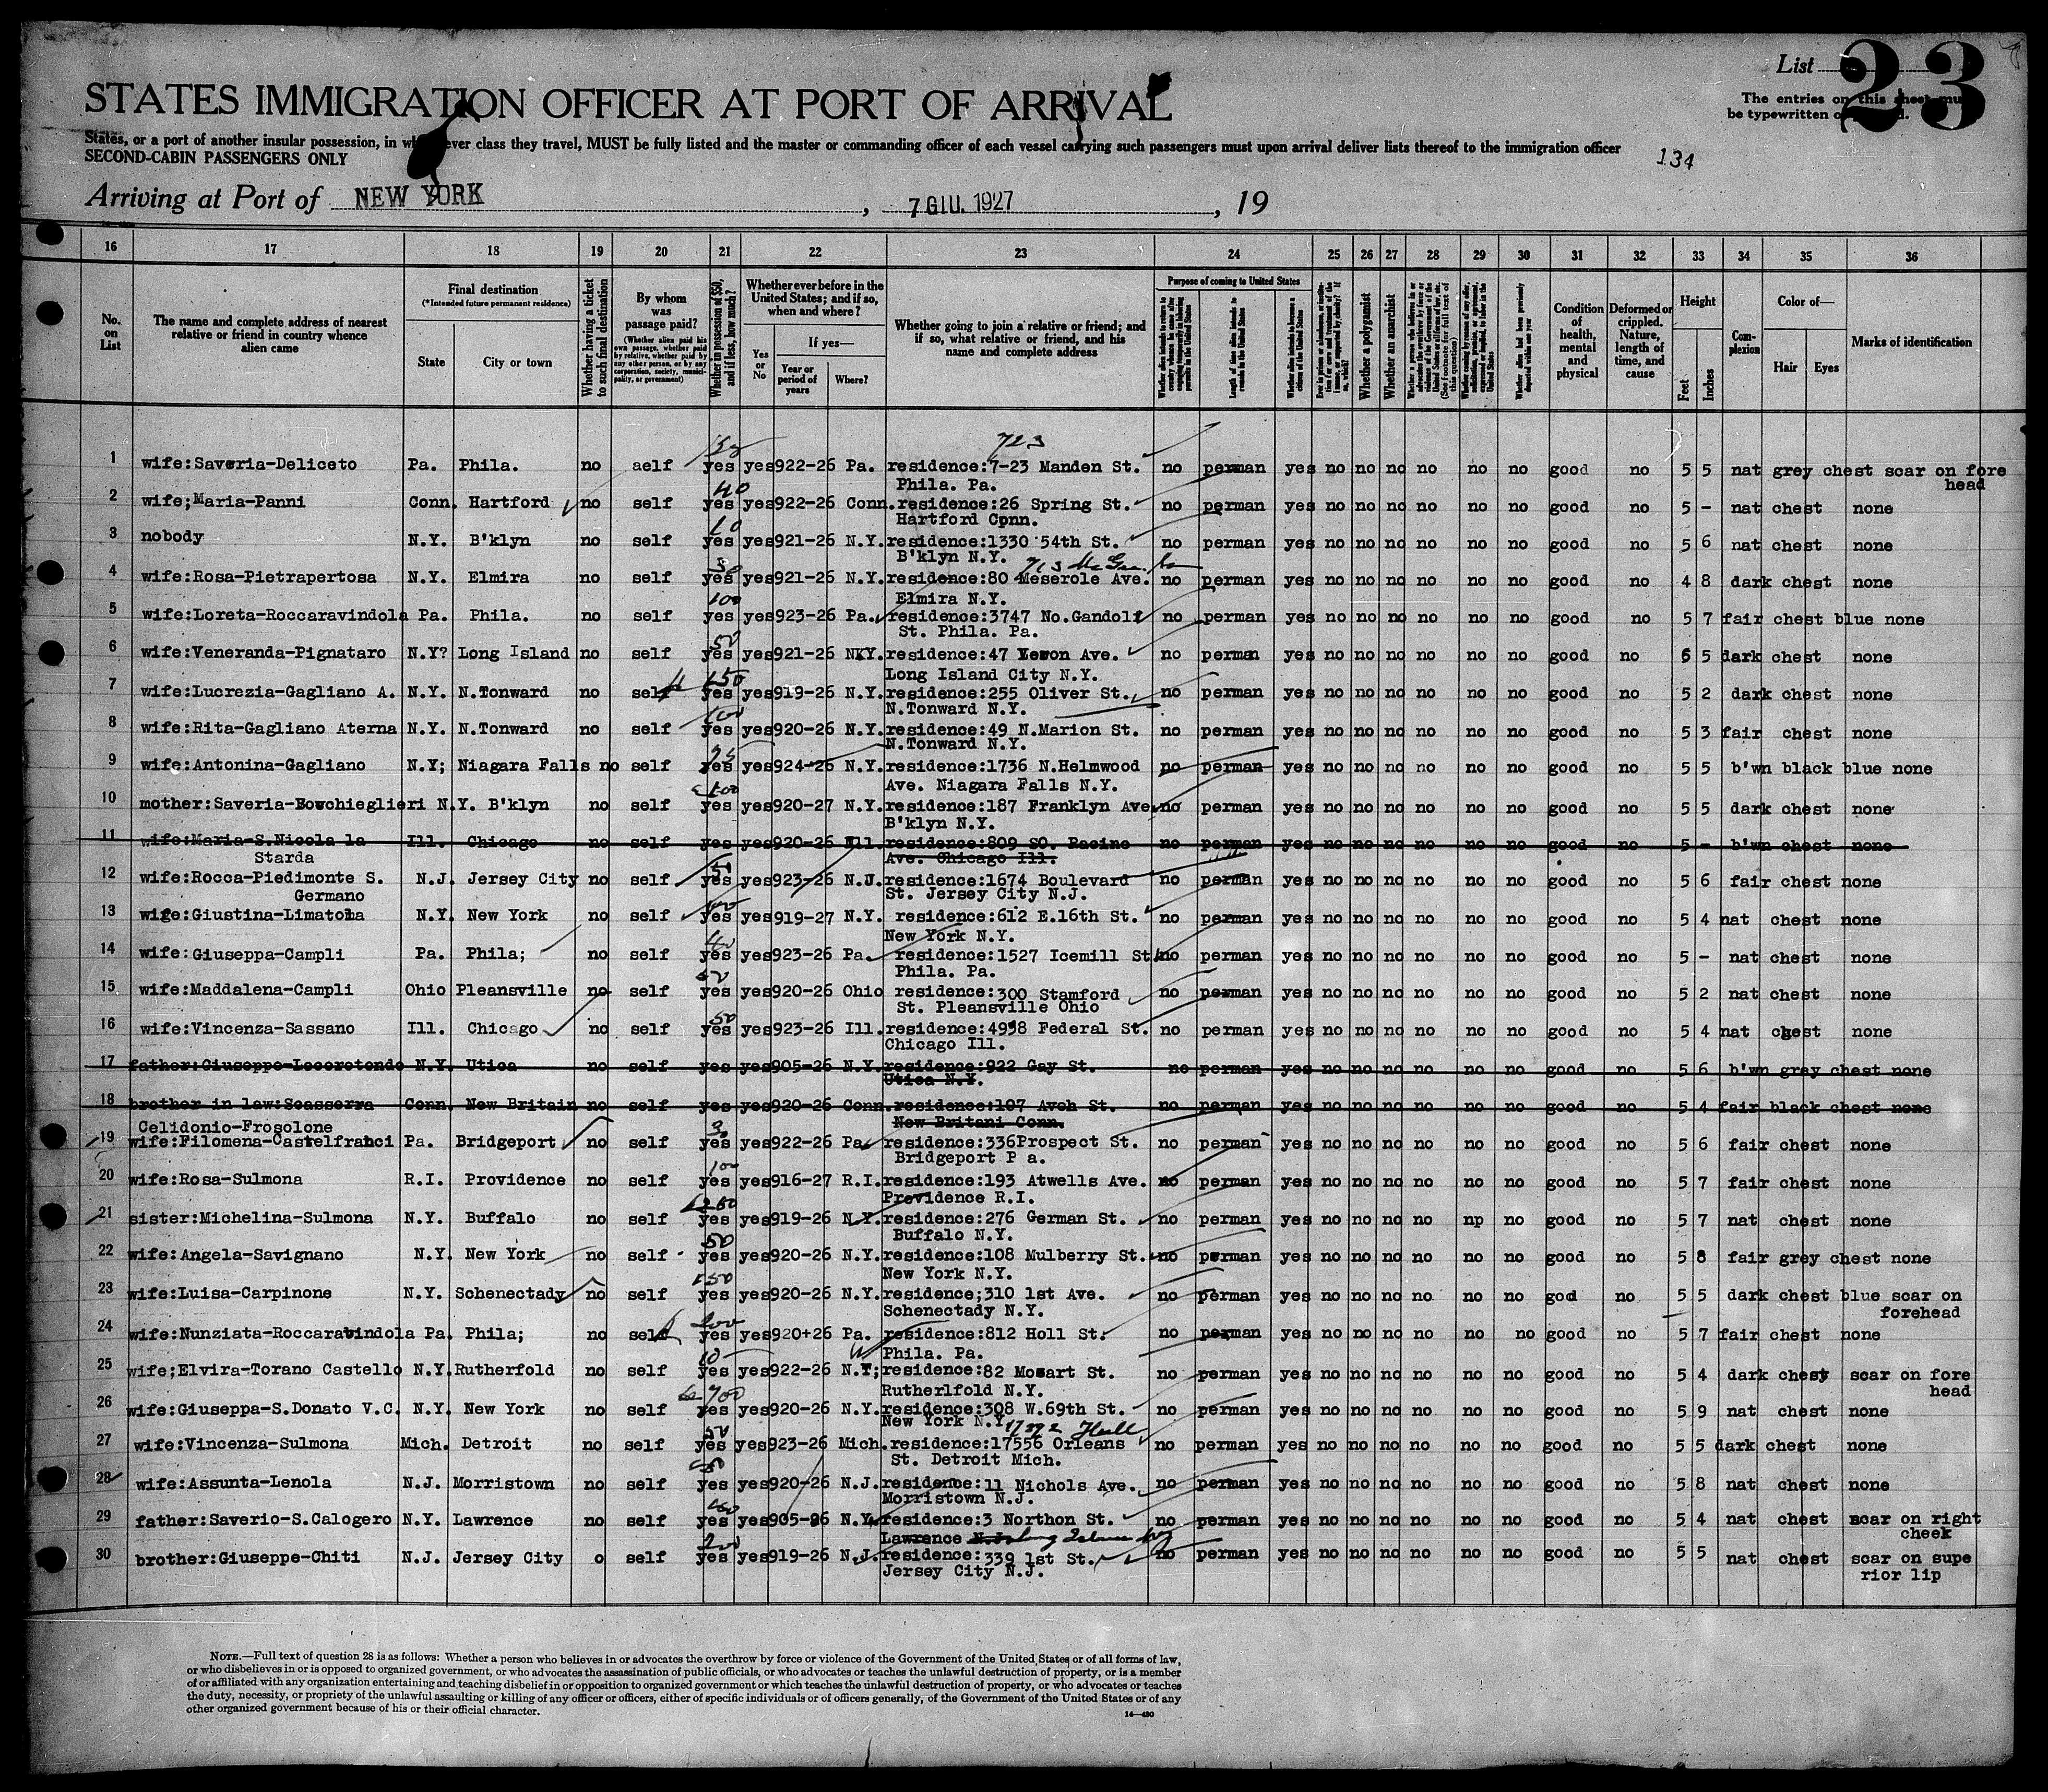 List 23
The entries on this sheet must
be typewritten or
STATES IMMIGRATION OFFICER AT PORT OF ARRIVAL
States, or a port of another insular possession, in whatever class they travel, MUST be fully listed and the master or commanding officer of each vessel carrying such passengers must upon arrival deliver lists thereof to the immigration officer
SECOND-CABIN PASSENGERS ONLY
134
Arriving at Port of NEW YORK, 7 GIU. 1927, 19
16 17 18 19 20 21 22 23 24 25 26 27 28 29 30 31 32 33 34 35 36
No. on List
The name and complete address of nearest relative or friend in country whence alien came
Final destination
(*Intended future permanent residence)
State
City or town
Whether having a ticket to such final destination
By whom was passage paid?
(Whether alien paid his own passage, whether paid by relative, whether paid by any other person, or by any corporation, society, municipality, or government)
Whether in possession of $50, and if less, how much?
Whether ever before in the United States; and if so, when and where?
Yes or No
If yes—
Year or period of years
Where?
Whether going to join a relative or friend; and if so, what relative or friend, and his name and complete address
Purpose of coming to United States
Length of time alien intends to remain in the United States
Whether alien intends to become a citizen of the United States
Whether a polygamist
Whether an anarchist
Condition of health, mental and physical
Deformed or crippled. Nature, length of time, and cause
Height
Feet
Inches
Complexion
Color of—
Hair
Eyes
Marks of identification
723
1 wife:Saveria-Deliceto Pa. Phila. no aelf yes yes 922-26 Pa. residence:7-23 Manden St. no perman yes no no no no no no good no 5 5 nat grey chest scar on fore
Phila. Pa. head
2 wife;Maria-Panni Conn. Hartford no self yes yes 922-26 Conn. residence:26 Spring St. no perman yes no no no no no no good no 5 - nat chest none
Hartford Conn.
3 nobody N.Y. B'klyn no self yes yes 921-26 N.Y. residence:1330 54th St. no perman yes no no no no no no good no 5 6 nat chest none
B'klyn N.Y.
4 wife:Rosa-Pietrapertosa N.Y. Elmira no self yes yes 921-26 N.Y. residence:80 Meserole Ave. no perman yes no no no no no no good no 4 8 dark chest none
Elmira N.Y.
5 wife:Loreta-Roccaravindola Pa. Phila. no self yes yes 923-26 Pa. residence:3747 No.Gandolf no perman yes no no no no no no good no 5 7 fair chest blue none
St. Phila. Pa.
6 wife:Veneranda-Pignataro N.Y? Long Island no self yes yes 921-26 N.Y. residence:47 Ave. no perman yes no no no no no no good no 5 5 dark chest none
Long Island City N.Y.
7 wife:Lucrezia-Gagliano A. N.Y. N.Tonward no self yes yes 919-26 N.Y. residence:255 Oliver St. no perman yes no no no no no no good no 5 2 dark chest none
N.Tonward N.Y.
8 wife:Rita-Gagliano Aterna N.Y. N.Tonward no self yes yes 920-26 N.Y. residence:49 N.Marion St. no perman yes no no no no no no good no 5 3 fair chest none
N.Tonward N.Y.
9 wife:Antonina-Gagliano N.Y; Niagara Falls no self yes yes 924-26 N.Y. residence:1736 N.Helmwood no perman yes no no no no no no good no 5 5 b'wn black blue none
Ave. Niagara Falls N.Y.
10 mother:Saveria- N.Y. B'klyn no self yes yes 920-27 N.Y. residence:187 Franklyn Ave. no perman yes no no no no no no good no 5 5 dark chest none
B'klyn N.Y.
11 wife:Maria-S.Nicola la Ill. Chicago no self yes yes 920-26 Ill. residence:809 SO. Racine no perman yes no no no no no no good no 5 - b'wn chest none
Starda Ave. Chicago Ill.
12 wife:Rocca-Piedimonte S. N.J. Jersey City no self yes yes 923-26 N.J. residence:1674 Boulevard no perman yes no no no no no no good no 5 6 fair chest none
Germano St. Jersey City N.J.
13 wige:Giustina-Limatola N.Y. New York no self yes yes 919-27 N.Y. residence:612 E.16th St. no perman yes no no no no no no good no 5 4 nat chest none
New York N.Y.
14 wife:Giuseppa-Campli Pa. Phila; no self yes yes 923-26 Pa. residence:1527 Icemill St. no perman yes no no no no no no good no 5 - nat chest none
Phila. Pa.
15 wife:Maddalena-Campli Ohio Pleansville no self yes yes 920-26 Ohio residence:300 Stamford no perman yes no no no no no no good no 5 2 nat chest none
St. Pleansville Ohio
16 wife:Vincenza-Sassano Ill. Chicago no self yes yes 923-26 Ill. residence:4938 Federal St. no perman yes no no no no no no good no 5 4 nat chest none
Chicago Ill.
17 father:Giuseppe-Locorotondo N.Y. Utica no self yes yes 905-26 N.Y. residence:922 Gay St. no perman yes no no no no no no good no 5 6 b'wn grey chest none
Utica N.Y.
18 brother in law:Scasserra Conn. New Britain no self yes yes 920-26 Conn. residence:107 Avch St. no perman yes no no no no no no good no 5 4 fair black chest none
Celidonio-Frosolone New Britani Conn.
19 wife:Filomena-Castelfranci Pa. Bridgeport no self yes yes 922-26 Pa. residence:336Prospect St. no perman yes no no no no no no good no 5 6 fair chest none
Bridgeport P a.
20 wife:Rosa-Sulmona R.I. Providence no self yes yes 916-27 R.I. residence:193 Atwells Ave. no perman yes no no no no no no good no 5 7 fair chest none
Providence R.I.
21 sister:Michelina-Sulmona N.Y. Buffalo no self yes yes 919-26 N.Y. residence:276 German St. no perman yes no no no no np no good no 5 7 nat chest none
Buffalo N.Y.
22 wife:Angela-Savignano N.Y. New York no self yes yes 920-26 N.Y. residence:108 Mulberry St. no perman yes no no no no no no good no 5 8 fair grey chest none
New York N.Y.
23 wife:Luisa-Carpinone N.Y. Schenectady no self yes yes 920-26 N.Y. residence;310 1st Ave. no perman yes no no no no no no good no 5 5 dark chest blue scar on
Schenectady N.Y. forehead
24 wife:Nunziata-Roccaravindola Pa. Phila; no self yes yes 920+26 Pa. residence:812 Holl St. no perman yes no no no no no no good no 5 7 fair chest none
Phila. Pa.
25 wife;Elvira-Torano Castello N.Y. Rutherfold no self yes yes 922-26 N.Y; residence:82 Mozart St. no perman yes no no no no no no good no 5 4 dark chest scar on fore
Rutherlfold N.Y. head
26 wife:Giuseppa-S.Donato V.C. N.Y. New York no self yes yes 920-26 N.Y. residence:308 W.69th St. no perman yes no no no no no no good no 5 9 nat chest none
New York N.Y.
27 wife:Vincenza-Sulmona Mich. Detroit no self yes yes 923-26 Mich. residence:17556 Orleans no perman yes no no no no no no good no 5 5 dark chest none
St. Detroit Mich.
28 wife:Assunta-Lenola N.J. Morristown no self yes yes 920-26 N.J. residence:11 Nichols Ave. no perman yes no no no no no no good no 5 8 nat chest none
Morristown N.J.
29 father:Saverio-S.Calogero N.Y. Lawrence no self yes yes 905-26 N.Y. residence:3 Northon St. no perman yes no no no no no no good no 5 4 nat chest scar on right
Lawrence Long Island NY cheek
30 brother:Giuseppe-Chiti N.J. Jersey City o self yes yes 919-26 N.J. residence:339 1st St. no perman yes no no no no no no good no 5 5 nat chest scar on supe
Jersey City N.J. rior lip
NOTE.—Full text of question 28 is as follows: Whether a person who believes in or advocates the overthrow by force or violence of the Government of the United States or of all forms of law,
or who disbelieves in or is opposed to organized government, or who advocates the assassination of public officials, or who advocates or teaches the unlawful destruction of property, or is a member
of or affiliated with any organization entertaining and teaching disbelief in or opposition to organized government or which teaches the unlawful destruction of property, or who advocates or teaches
the duty, necessity, or propriety of the unlawful assaulting or killing of any officer or officers, either of specific individuals or of officers generally, of the Government of the United States or of any
other organized government because of his or their official character.
14—420